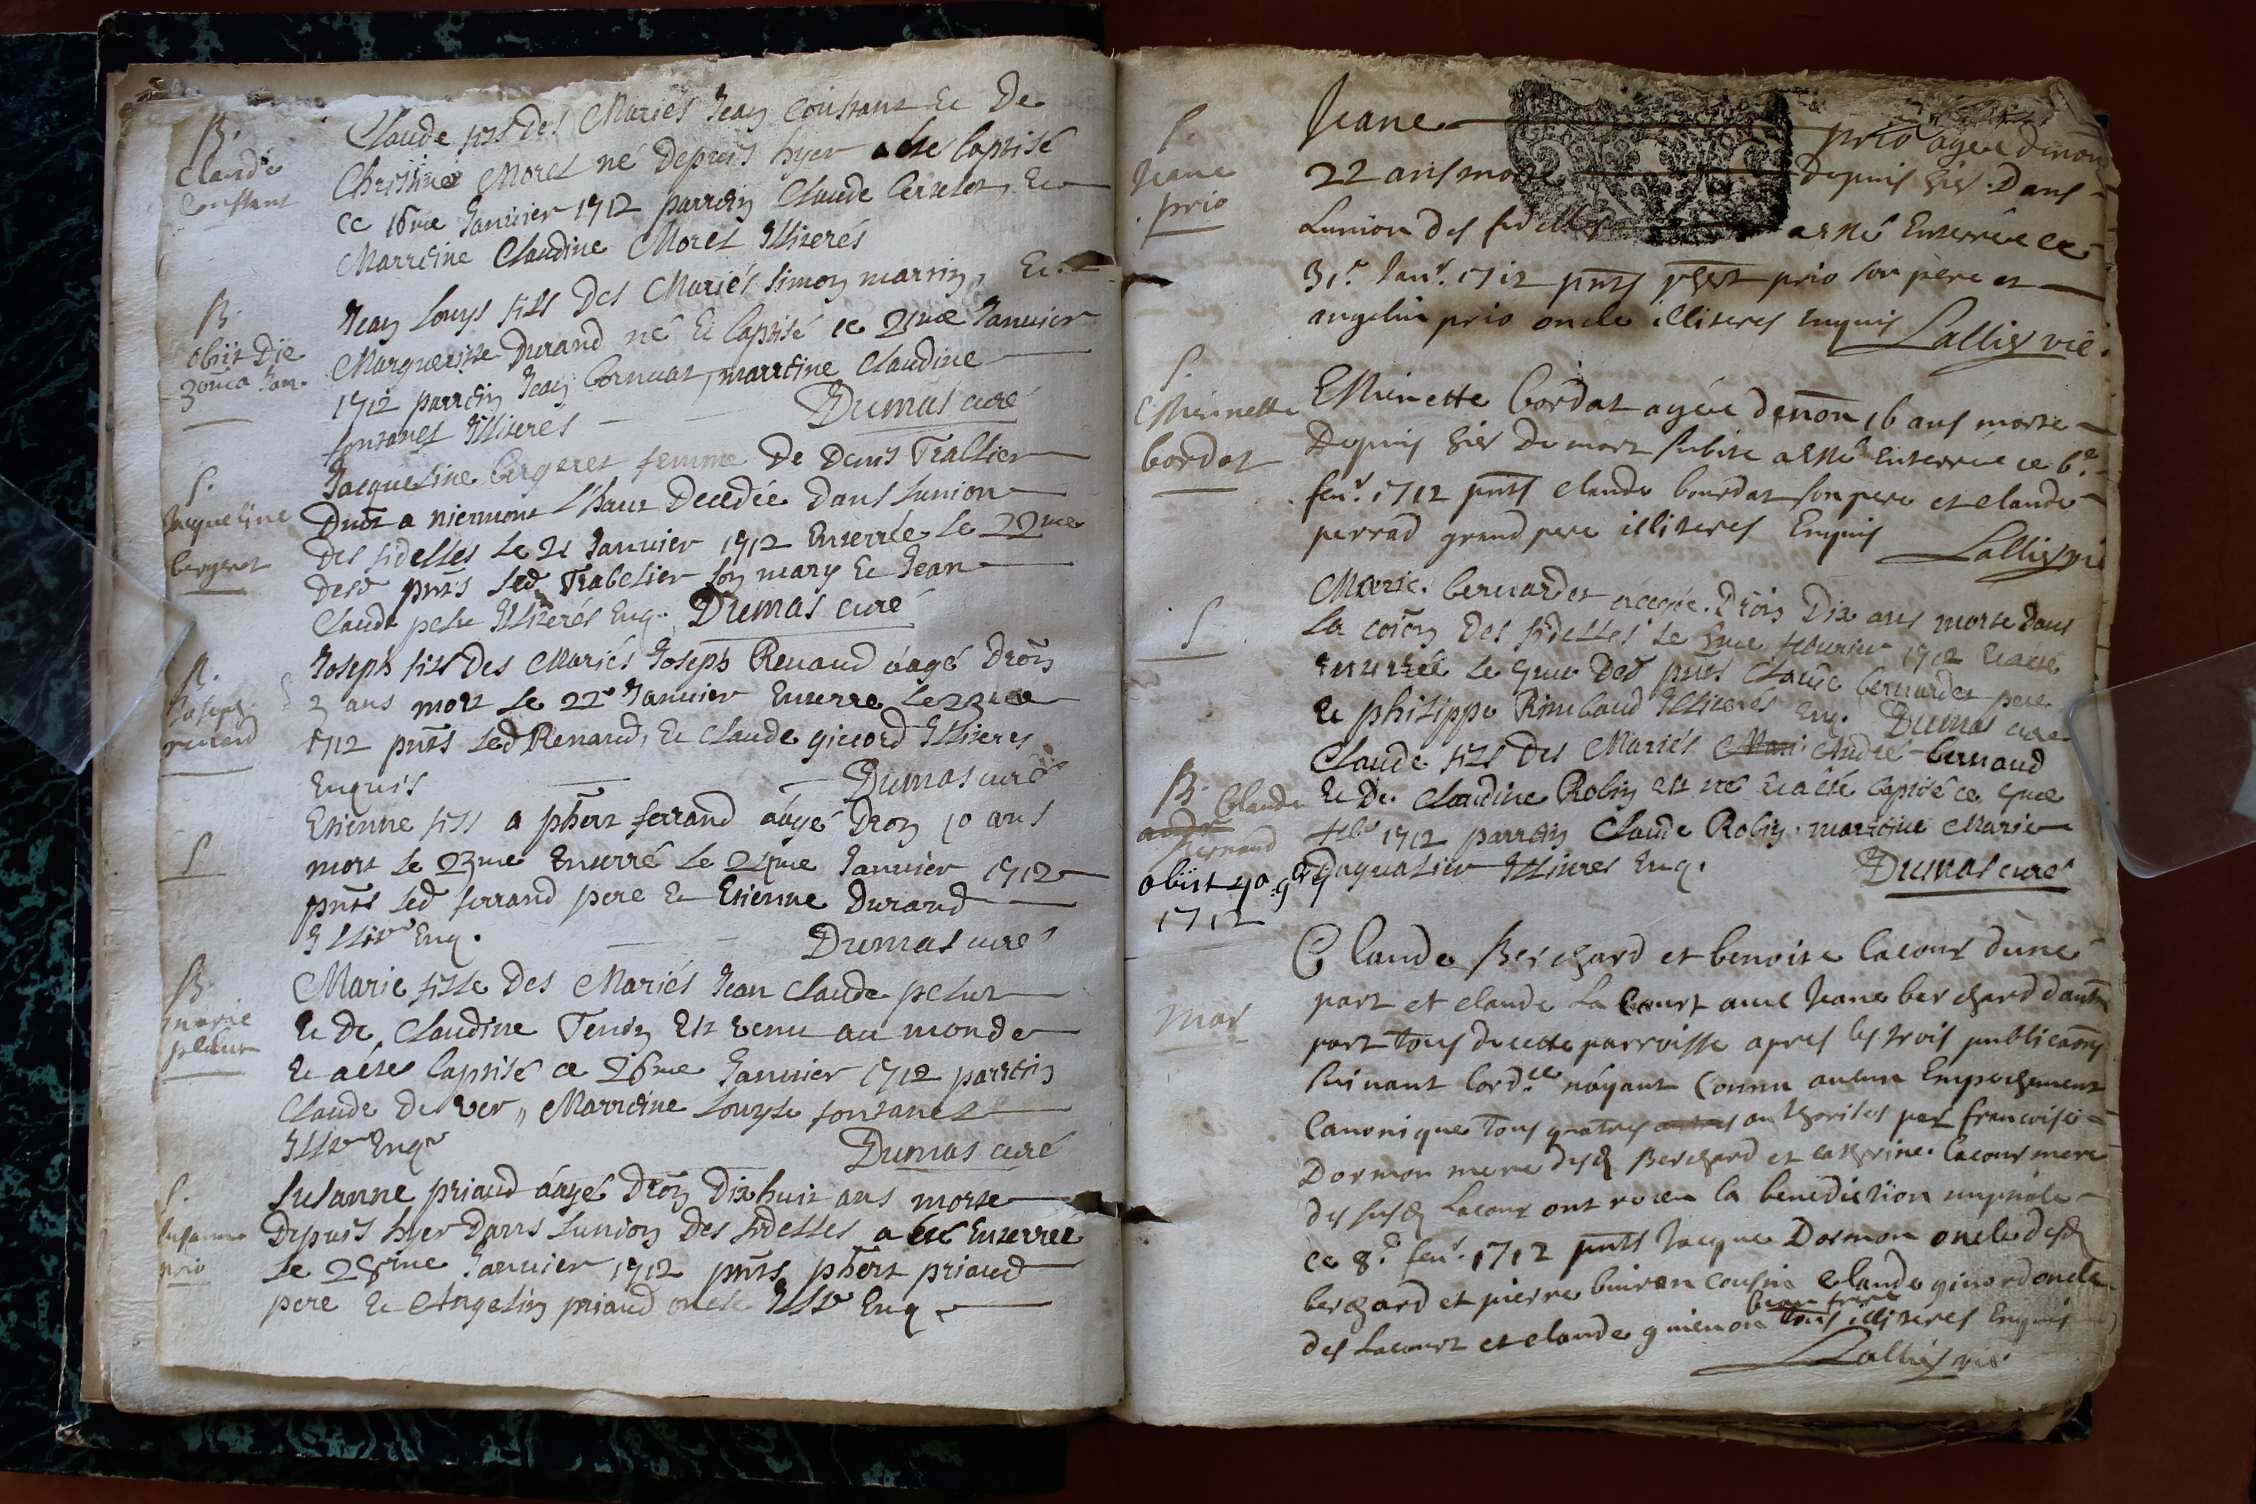 B.
Claude
Constant
Claude fils Des Mariés Jean Constant Et De
Christine Moret né Depuis hyer a été baptisé
ce 16me Janvier 1712 parrein Claude Et
Marreine Claudine Moret Illiterés
B.
obiit Die
30ma Jan.
Jean Louys fils Des Mariés Simon marrin, Et
Marguerite Durand né Et baptisé ce Janvier
1712 parrein Jean Cornuat, marreine Claudine
fontanet Illiterés Dumas curé
S.
Jaqueline
bergeret
Jacqueline Bergeret femme De Denis Trablier
Dud a niermont L'haut Decedée Dans Lunion
Des fidelles Le 21 Janvier 1712 Enterrée Le 22me
Desd pnts Led Trabelier son mary Et Jean
Claude pelu Illiterés Enq. Dumas curé
S.
Joseph
renard
Joseph fils Des Mariés Joseph Renaud âagé Dron
3 ans mort Le 22e Janvier Enterre Le 23me
1712 pnts Led Renaud, Et Claude giccord Illiteres
Enquis Dumas curé
S
Etienne fils a phert ferrand âagé Dron 10 ans
mort Le 23me Enterré Le 24me Janvier 1712
pnts Led ferrand pere Et Etienne Durand
Illit Enq. Dumas curé
B
marie
pelux
Marie fille Des Mariés Jean Claude pelut
Et De Claudine Tenin Est venu au monde
Et a été baptisé ce 26me Janvier 1712 parrein
Claude De ver, Marreine Louyse fontanet
Illit Enq Dumas curé
S.
Susanne
prio
Susanne priaud âagé Dron Dix huit ans morte
Depuis hyer Dans Lunion Des fidelles a été Enterrée
Le 28me Janvier 1712 pnts phert priaud
pere Et Angelin priaud oncle Illit Enq
S.
Jeane
prio
Jeane prio agée denon
22 ans morte depuis hier Dans
Lunion des fidelles a esté Enterrée ce
31e Janr. 1712 pnts phert prio son père et
angelin prio oncle illiteres Enquis Lallier vic.
S.
Estiennette
bordat
Estienette bordat agée denon 16 ans morte
Depuis hier De mort subite a esté Enterrée ce 6e
fevr. 1712 pnts claude bourdat son pere et claude
perrad grand pere illiteres Enquis Lallier vic
S
Marie bernardet aagée Dron Dix ans morte Dans
La coion Des fidelles Le febvrier 1712 Et a été
Enterrée Le Ded pnts Claude bernardet pere
Et philippe Rimbaud Illiterés Enq. Dumas curé
B. Claude
andre
bernand
obiit 40 9bre
1712
Claude fils Des Mariés Mari André bernaud
Et De Claudine Robin est né Et a été baptisé ce
feb 1712 parrein Claude Robin, marreine Marie
Daqualier Illitres Enq. Dumas curé
mar
Claude Berchard et benoite lacour dune
part et claude La Court avec Jeane berchard dautre
part tous de cette parroisse apres les trois publicaons
suivant lordce nayant Connu aucun Empechement
Canonique tous quatres authorises par francoise
Dormon mere desd Berchard et catherine lacour mere
des susd Lacour ont recu la benediction nuptiale
ce 8e fevr. 1712 pnts Jacque Dormon oncle desd
berchard et pierre buiron cousin claude ginord oncle
des Lacourt et claude guienon beau frere tous illiteres Enquis
Lallier vic